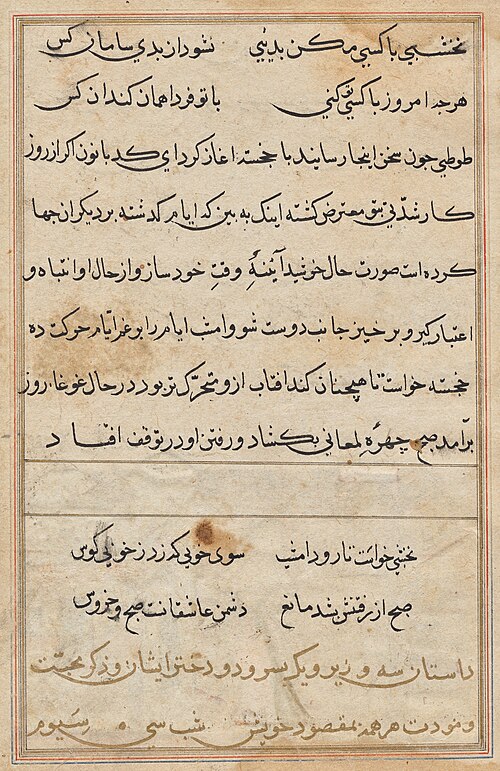 نخشبی با کسی مکن بدیئی نشود از بدی سامان کس
هرچه امروز با کسی تو کنی با تو فردا همان کند آن کس
طوطی چون سخن اینجا رسانید با خجسته اغاز کرد ای کدبانو نکر از روز
کار شدنی متعرض کشته اینک به بین که ایام کذشته بر دیکران جها
کرده است صورت حال خوشید آینهٔ وقتِ خود ساز و از حال او انتباه و
اعتبار کیر و بر خیز جانب دوست شو و امشب ایام را بر غم ایام حرکت ده
خجسته خواست تا همچنان کند افتاب ازو متحرک تر بود در حال غوغاء روز
برآمد صبح چهرهٔ لمعانی بکشاد و رفتن او در توقف افتاد
نخشبی خواست تا رود امشب سوی خوبی که زد ز خوبی کوس
صبح از رفتنش بشد مانع دشمن عاشقانست صبح و خروس
داستان سه وزیر و یک سر و دو دختر ایشان و ذکر محبت
و مودت هر همه بمقصود خویش شب سی و سیوم